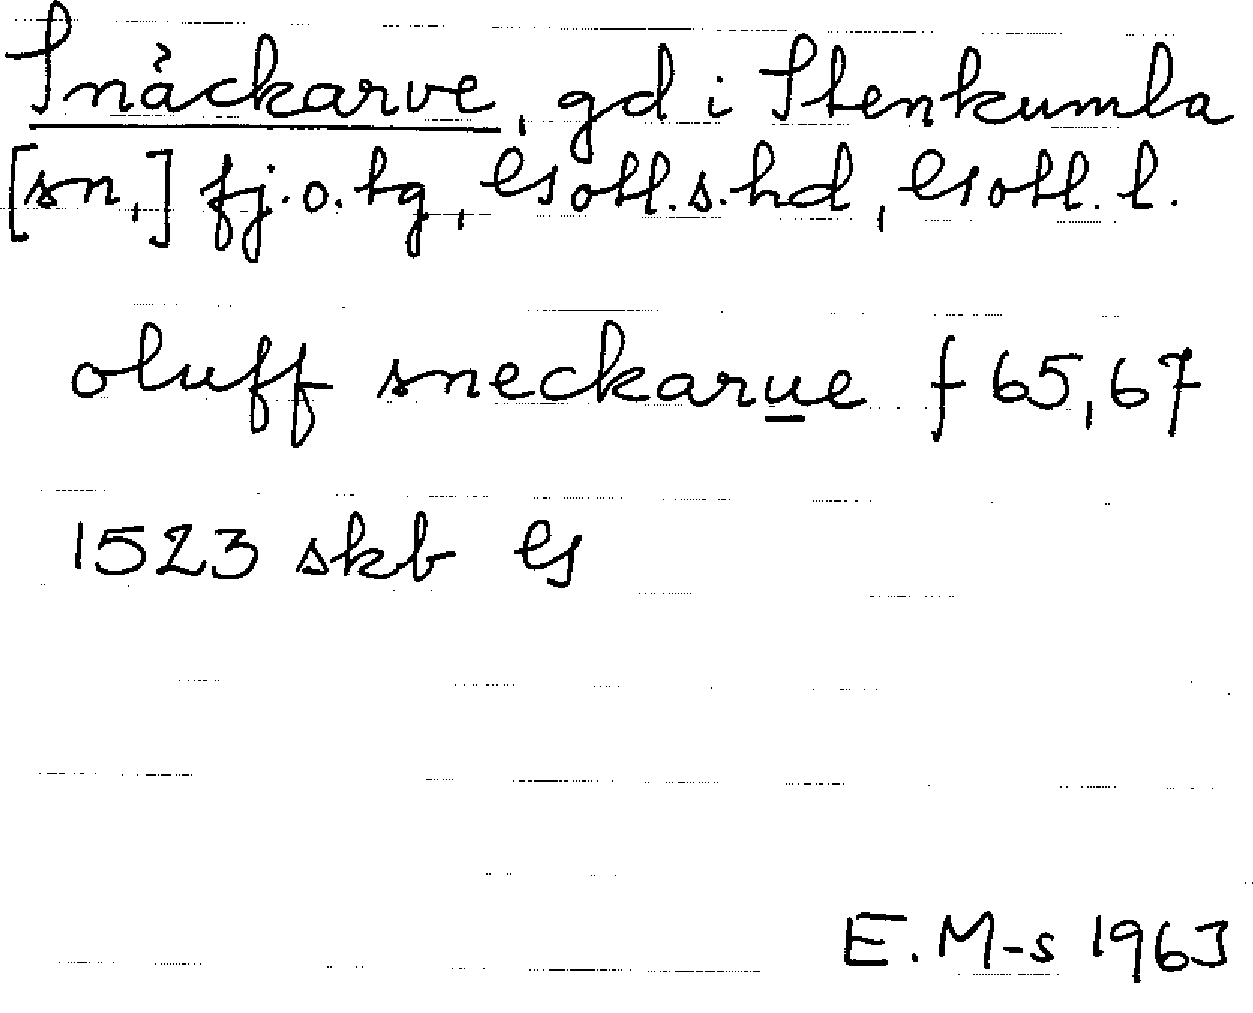 Snäckarve, gd i Stenkumla
[sn,] fj.o.tg, Gotl.s.hd, Gotl.l.
oluff sneckarue f 65,67
1523 skb G
E.M-s 1963